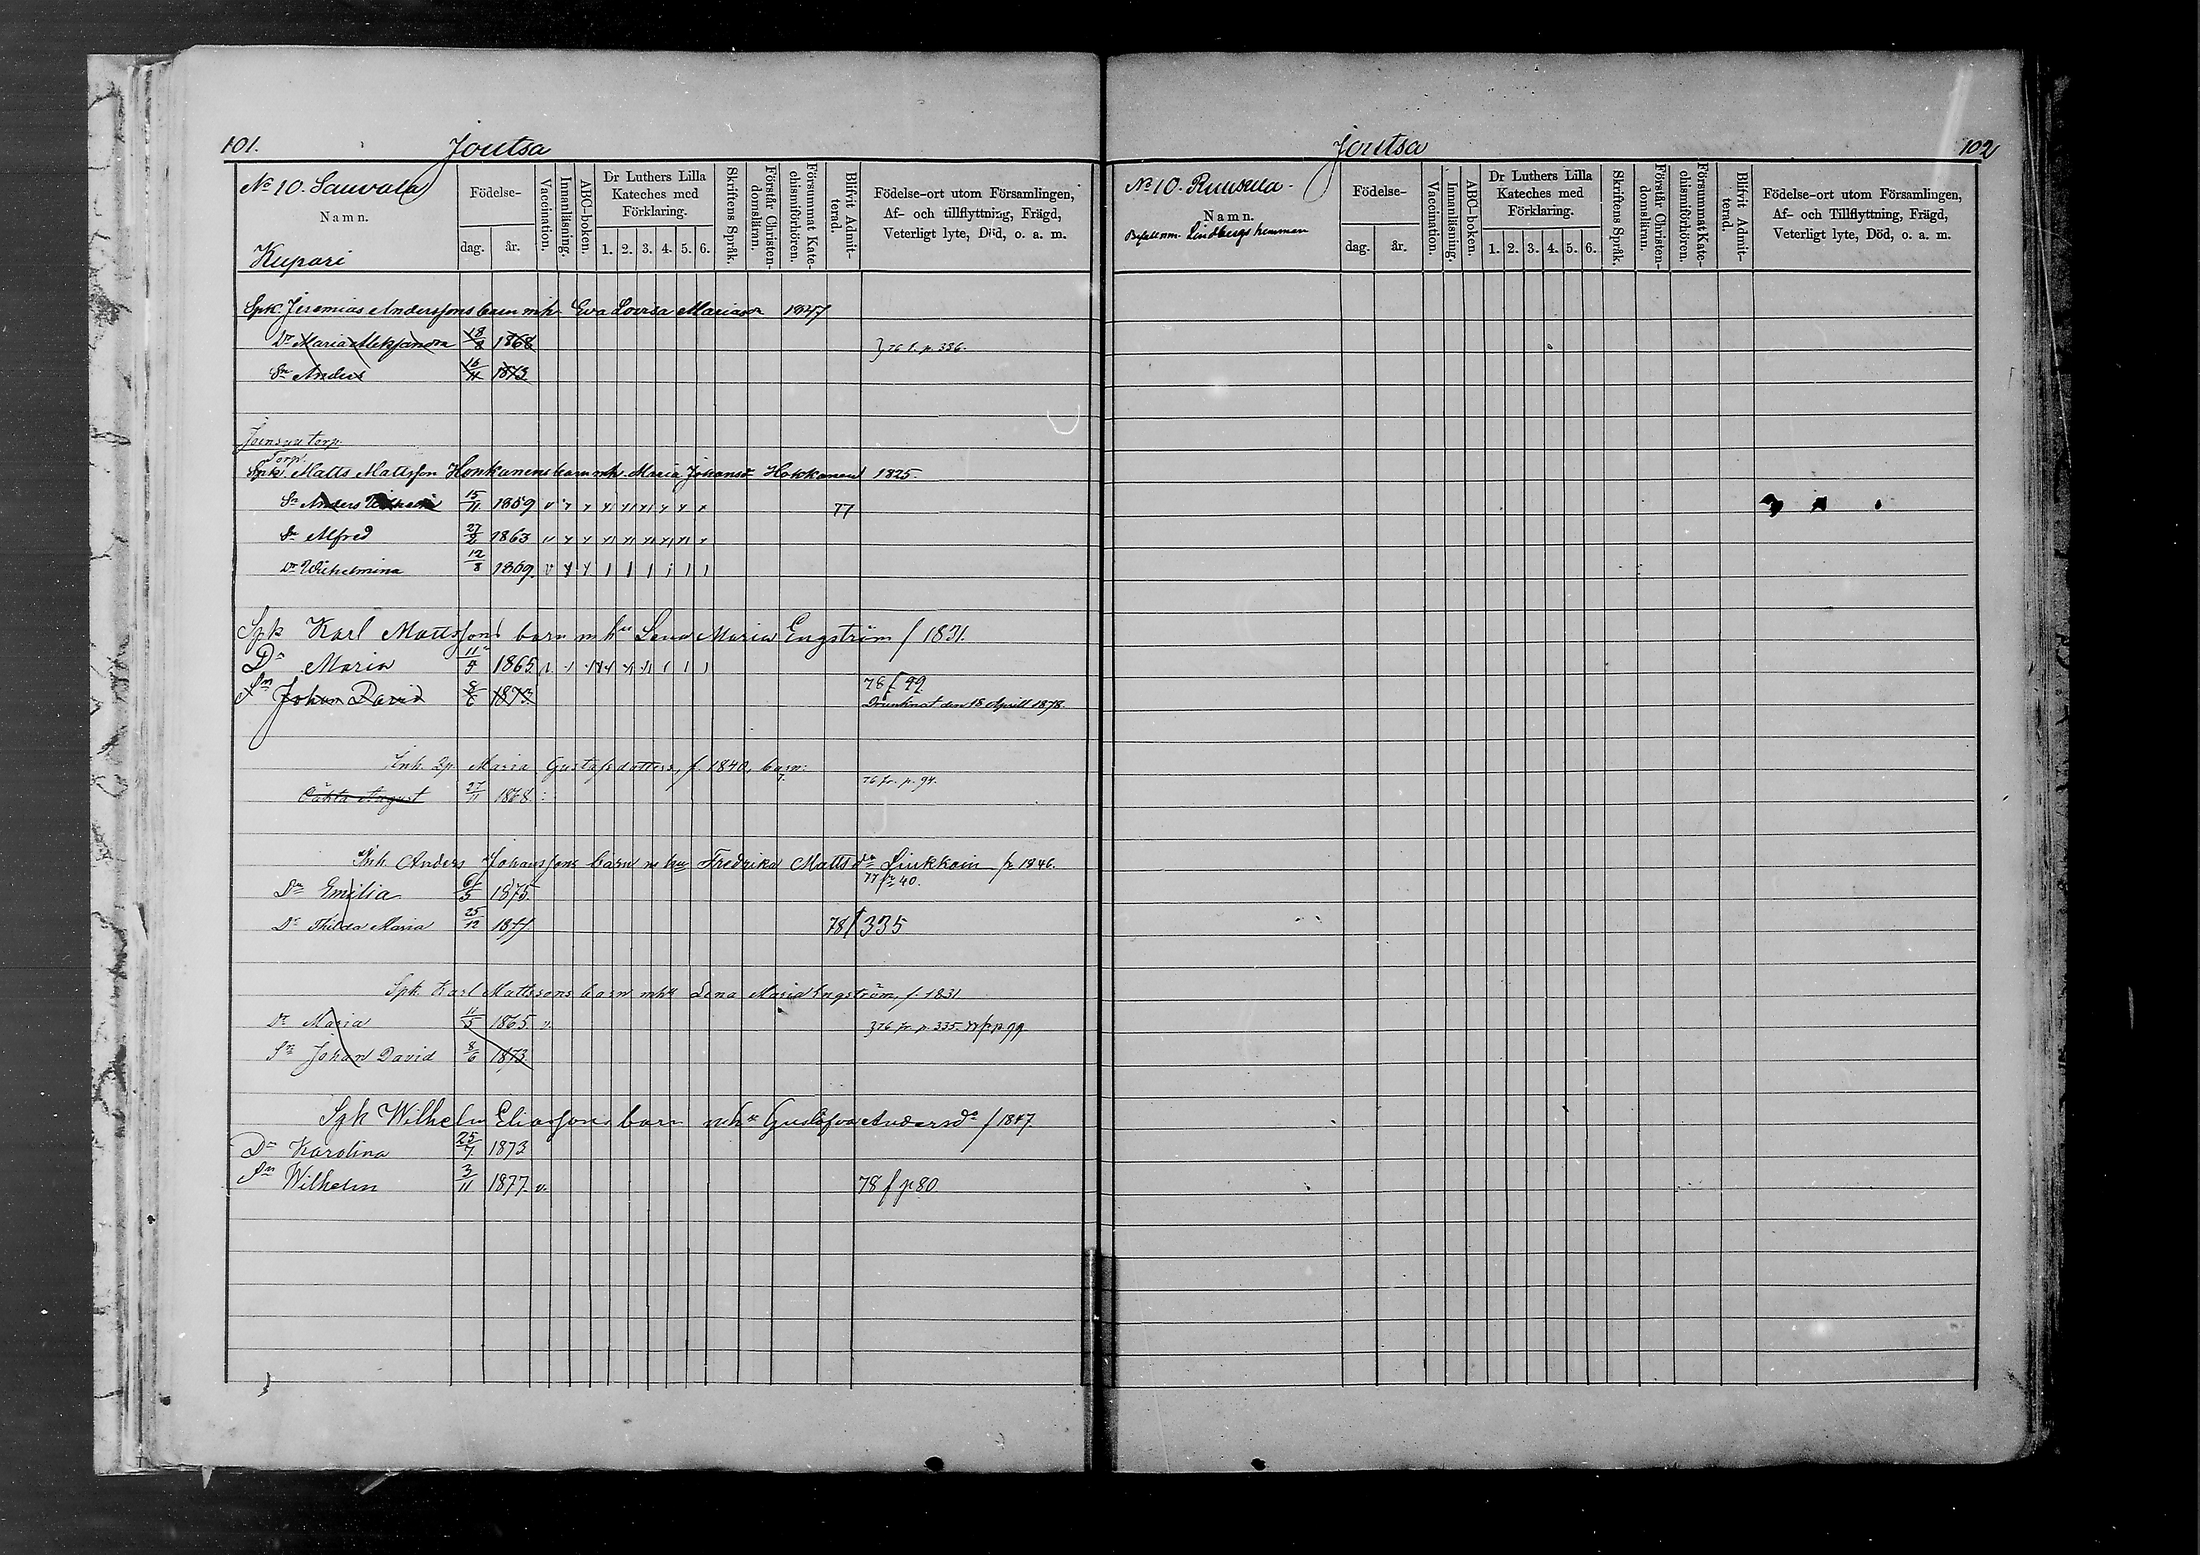 101. Joutsa
No 10. Sauvala
Namn.
Kupari
Födelse-
dag. år.
Vaccination.
Innanläsning.
ABC-boken.
Dr Luthers Lilla
Kateches med
Förklaring.
1. 2. 3. 4. 5. 6.
Skriftens Språk.
Förstår Christen-
domsläran.
Försummat Kate-
chismiförhören.
Blifvit Admit-
terad.
Födelse-ort utom Församlingen,
Af- och tillflyttning, Frägd,
Veterligt lyte, Död, o. a. m.
Spk. Jeremias Anderssons barn mh Eva Lovisa 1847
Dr Maria Aleksandra 18/8 1868 } 76 f. p. 336.
Sn Anders 16/11 1873
Joensuu torp
Torp.
Spk. Matts Mattsson Honkanens barn mh. Maria Johansdr Hokkanen 1825.
Sn Anders 15/11 1859 77
Sn Alfred 27/2 1863
Dr Wilhelmina 12/8 1869
Spk Karl Mattssons barn m hu Lena Maria Engström f 1831.
Dr Maria 11/5 1865
78 f. 99
Sn Johan David 8/6 1873. Drunknat den 18 Aprill 1878.
Inh. Maria Gustafsdotters, f. 1840, barn:
76 fr. p. 94.
August 27/11 1868.
Inh Anders Johanssons barn m hu Fredrika Mattsdr f. 1846.
77 fr 40.
Dr Emilia 6/5 1875.
Dr Thilda Maria 25/12 1877 78 f 335
Spk Karl Mattssons barn mhu Lena Maria Engström, f. 1831
Dr Maria 11/5 1865 v. } 76 fr. p. 335. p. 99
Sn Johan David 8/6 1873
Spk Wilhelm Eliassons barn mhu Gustafva Andersdr f 1847
Dr Karolina 25/7 1873
Sn Wilhelm 3/11 1877. v. 78 f p 80
Joutsa 102
No 10. Ruuskila.
Namn.
Lindbergs hemman
Födelse-
dag. år.
Vaccination.
Innanläsning.
ABC-boken.
Dr Luthers Lilla
Kateches med
Förklaring.
1. 2. 3. 4. 5. 6.
Skriftens Språk.
Förstår Christen-
domsläran.
Försummat Kate-
chismiförhören.
Blifvit Admit-
terad.
Födelse-ort utom Församlingen,
Af- och Tillflyttning, Frägd,
Veterligt lyte, Död, o. a. m.